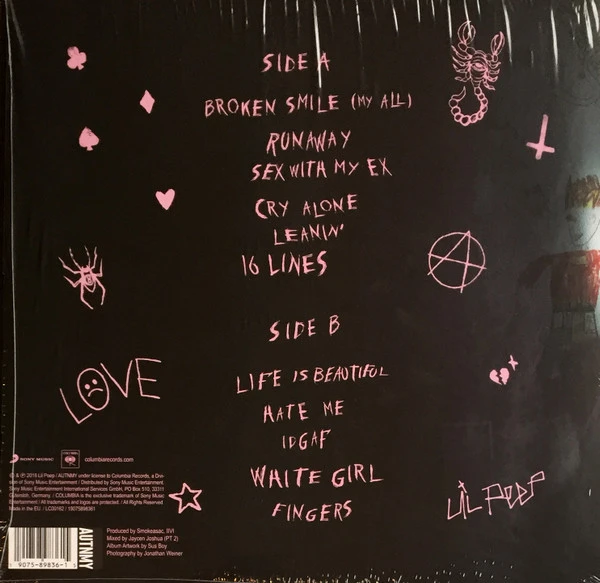 SIDE A
BROKEN SMILE (MY ALL)
RUNAWAY
SEX WITH MY EX
CRY ALONE
LEANIN'
16 LINES
SIDE B
LIFE IS BEAUTIFUL
HATE ME
IDGAF
WHITE GIRL
FINGERS
LOVE
LiL PEEP
SONY MUSIC
COLUMBIA
columbiarecords.com
& ℗ 2018 Lil Peep / AUTNMY under license to Columbia Records, a Divi-
sion of Sony Music Entertainment / Distributed by Sony Music Entertainment.
Sony Music Entertainment International Services GmbH, PO Box 510, 33311
Gütersloh, Germany. / COLUMBIA is the exclusive trademark of Sony Music
Entertainment / All trademarks and logos are protected. / All Rights Reserved
Made in the EU. / LC00162 / 19075898361
AUTNMY
9075-89836-1
Produced by Smokeasac, IIVI
Mixed by Jaycen Joshua (PT 2)
Album Artwork by Sus Boy
Photography by Jonathan Weiner